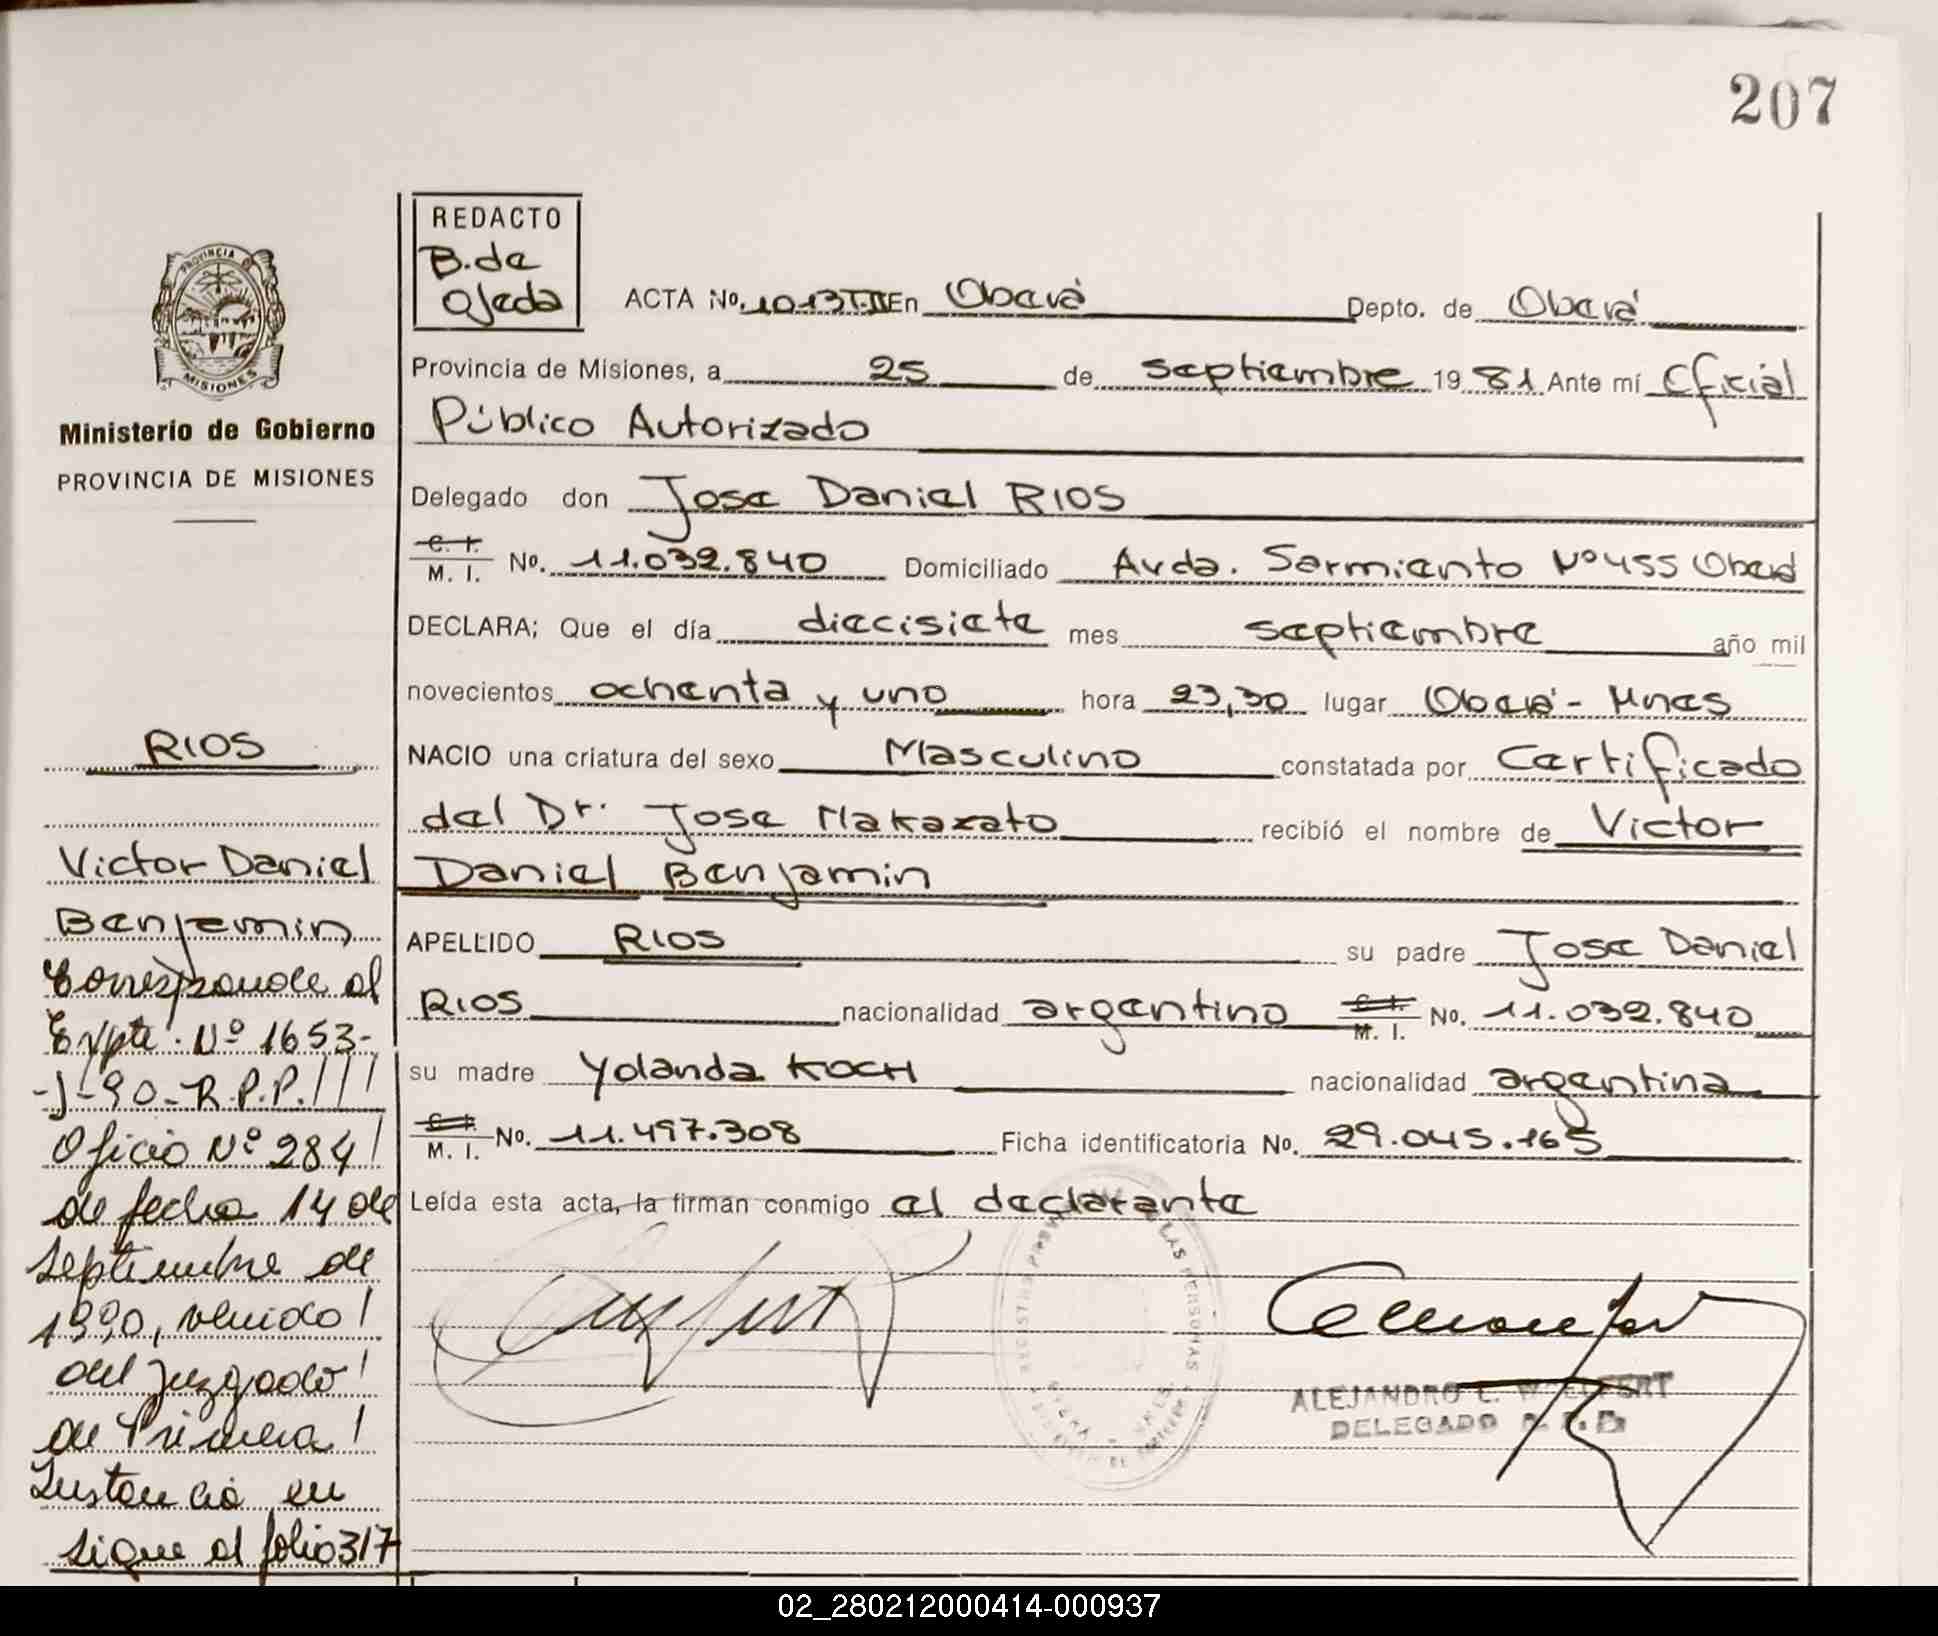 207
REDACTO
B. de
Ojeda
ACTA No. 1013 T.II En Oberá Depto. de Oberá
Provincia de Misiones, a 25 de septiembre 19 81 Ante mí Oficial
Público Autorizado
Delegado don Jose Daniel RIOS
C. I.
M. I. No. 11.032.840 Domiciliado Avda. Sarmiento Nº 455 Oberá
DECLARA; Que el día diecisiete mes septiembre año mil
novecientos ochenta y uno hora 23,30 lugar Oberá - Mnes
NACIO una criatura del sexo Masculino constatada por Certificado
del Dr. Jose Nakazato recibió el nombre de Victor
Daniel Benjamin
APELLIDO RIOS su padre Jose Daniel
RIOS nacionalidad argentino C. I. M. I. No. 11.032.840
su madre Yolanda KOCH nacionalidad argentina
C. I.
M. I. No. 11.497.308 Ficha identificatoria No. 29.045.165
Leída esta acta, la firman conmigo el declarante
REGISTRO LAS PERSONAS
ALEJANDRO C. WOLFERT
DELEGADO
PROVINCIA
MISIONES
Ministerio de Gobierno
PROVINCIA DE MISIONES
RIOS
Victor Daniel
Benjamin
Corresponde al
Expte. Nº 1653-
-J-90-R.P.P.///
Oficio Nº 284/
de fecha 14 de
septiembre de
1990, venido/
del Juzgado/
de Primera/
Instancia en
sigue al folio 317
02_280212000414-000937